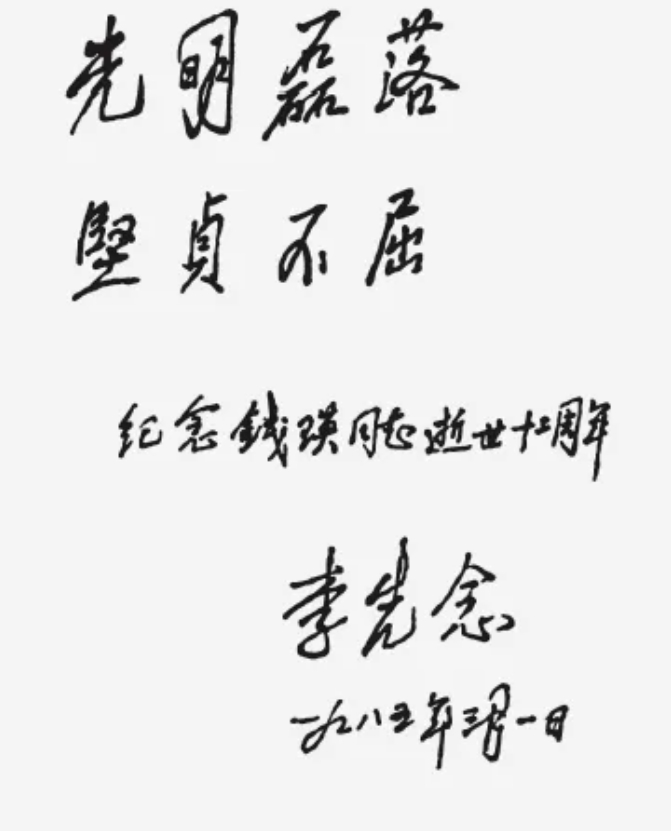 光明磊落
堅貞不屈
纪念錢瑛同志逝世十二周年
李先念
一九八五年三月一日